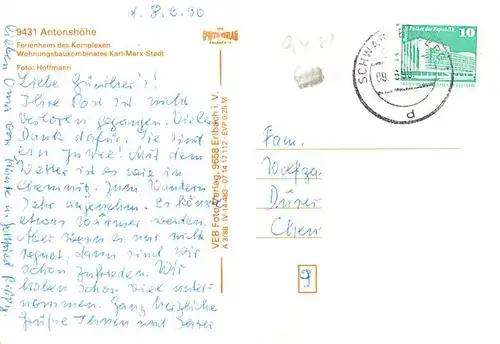 d. 8.6.90
9431 Antonshöhe
Ferienheim des Komplexen
Wohnungsbaukombinates Karl-Marx-Stadt
Foto: Hoffmann
Liebe
Ihre Post ist nicht
verloren gegangen. Vielen
Dank dafür. Sie sind
ein Juwel! Mit dem
Wetter ist es wie in
Chemnitz. Zum Wandern
sehr angenehm. Es könnte
etwas wärmer werden.
Aber wenn es nur nicht
regnet, dann sind wir
schon zufrieden. Wir
haben schon viel unter-
nommen. Ganz herzliche
Grüße Ihnen und
Oma von
VEB Foto-Verlag, 9658 Erlbach i. V.
A 3/88 IV-14-483 07 14 17 112 EVP 0,25 M
Palast der Republik
10
DDR
SCHWARZ
09
d
Fam.
Wolfga
Dürer
Chem